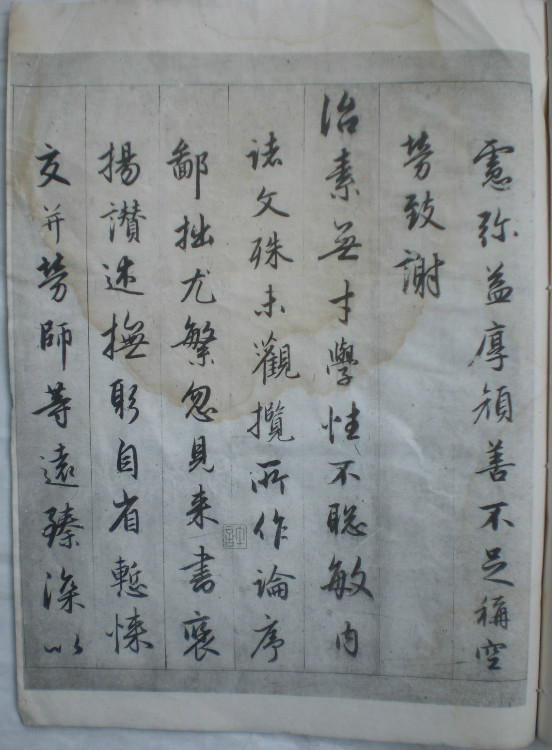 慮弥益厚顔善不足稱空
勞致謝
治素無才學性不聰敏内
諸文殊未觀攬所作論序
鄙拙尤繁忽見来書褒
揚讃述撫躬自省慙悚
交并勞師等遠臻深以